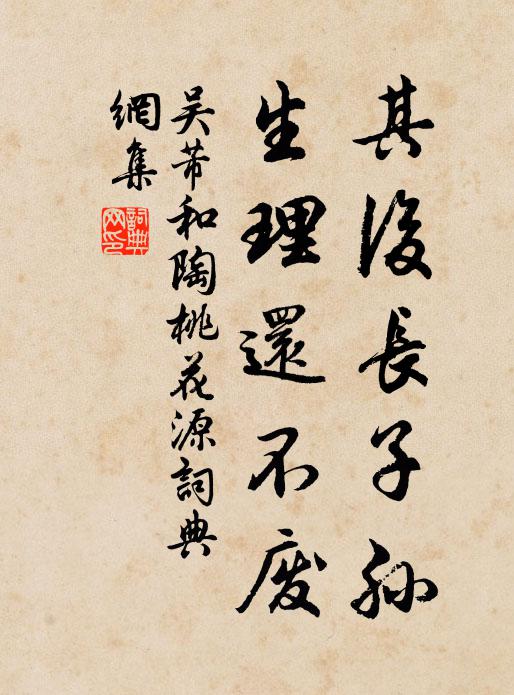 其後長子孫
生理還不廢
吴芾和陶桃花源詞典
網集
詞典
网印